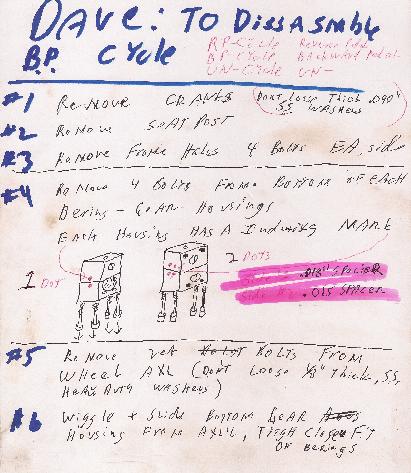 DAVE: TO DISSASMBLE
B.P. CYCLE
RP-CYCLE
BP-CYCLE BACKWARD PEDAL
UN-CYCLE UN-
#1 ReMove CRANKS (DONT Loose Thick .090"
SS WASHERS
#2 ReMove SEAT POST
#3 ReMove FRAMe 4 BOLTS EA, side
#4 ReMove 4 BOLTS FROM BOTTOM OF EACH
Bering - GeAR HOUSINGS
EACH HOUSING HAS A MARK
1 DOT
2 DOTS
.018" SPACER
.015 SPACER
#5 ReMove BOLTS FROM
WHeeL AXL (DONT Loose 1/8" Thick, SS,
HEAVY WASHERS)
#6 WIGGLE + SLIDE BOTTOM GEAR
HOUSING FROM AXLE, FIT
ON BERINGS